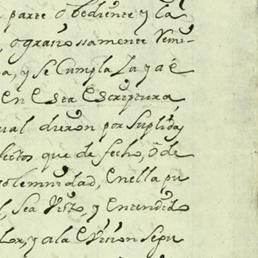 parte obediente y la
, o graciosamente Remi-
a, y se Cumpla La ya é
En esta Escriptura
ual dieron por Suplidos
fectos que de fecho, ó de
solemnidad, en ella pu
l, Sea Visto, y entendido
lor, y a la evision segu